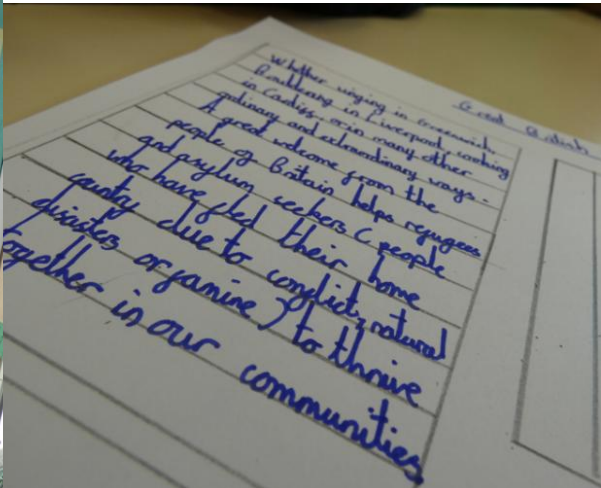 Great British
Whether singing in Greenwich,
Bouldering in Liverpool, cooking
in Cardiff or in many other
ordinary and extraordinary ways.
A great welcome from the
people of Britain helps refugees
and asylum seekers (people
who have fled their home
country due to conflict, natural
disasters or famine) to thrive
together in our communities